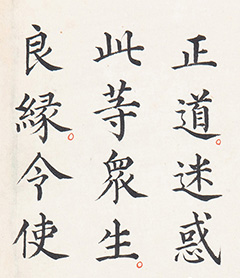 正道。迷惑
此等衆生。
良縁。令使